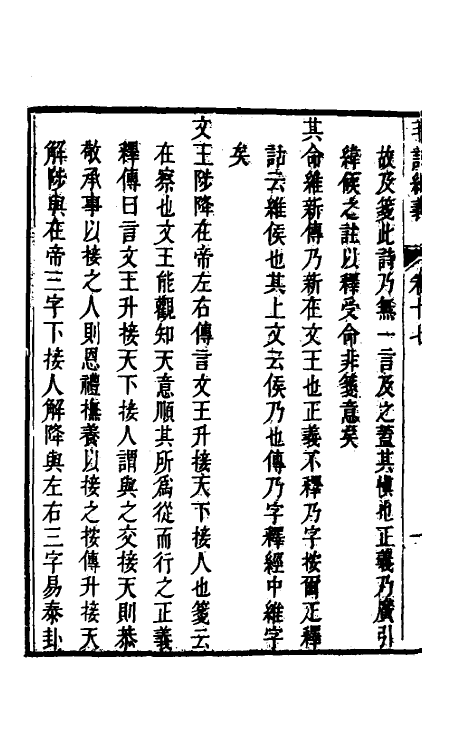 毛詩紬義　卷十七　一
故及箋此詩乃無一言及之蓋其愼也正義乃廣引
緯候之註以釋受命非箋意矣
其命維新傳乃新在文王也正義不釋乃字按爾疋釋
詁云維侯也其上文云侯乃也傳乃字釋經中維字
矣
文王陟降在帝左右傳言文王升接天下接人也箋云
在察也文王能觀知天意順其所為從而行之正義
釋傳曰言文王升接天下接人謂與之交接天則恭
敬承事以接之人則恩禮撫養以接之按傳升接天
解陟與在帝三字下接人解降與左右三字易泰卦